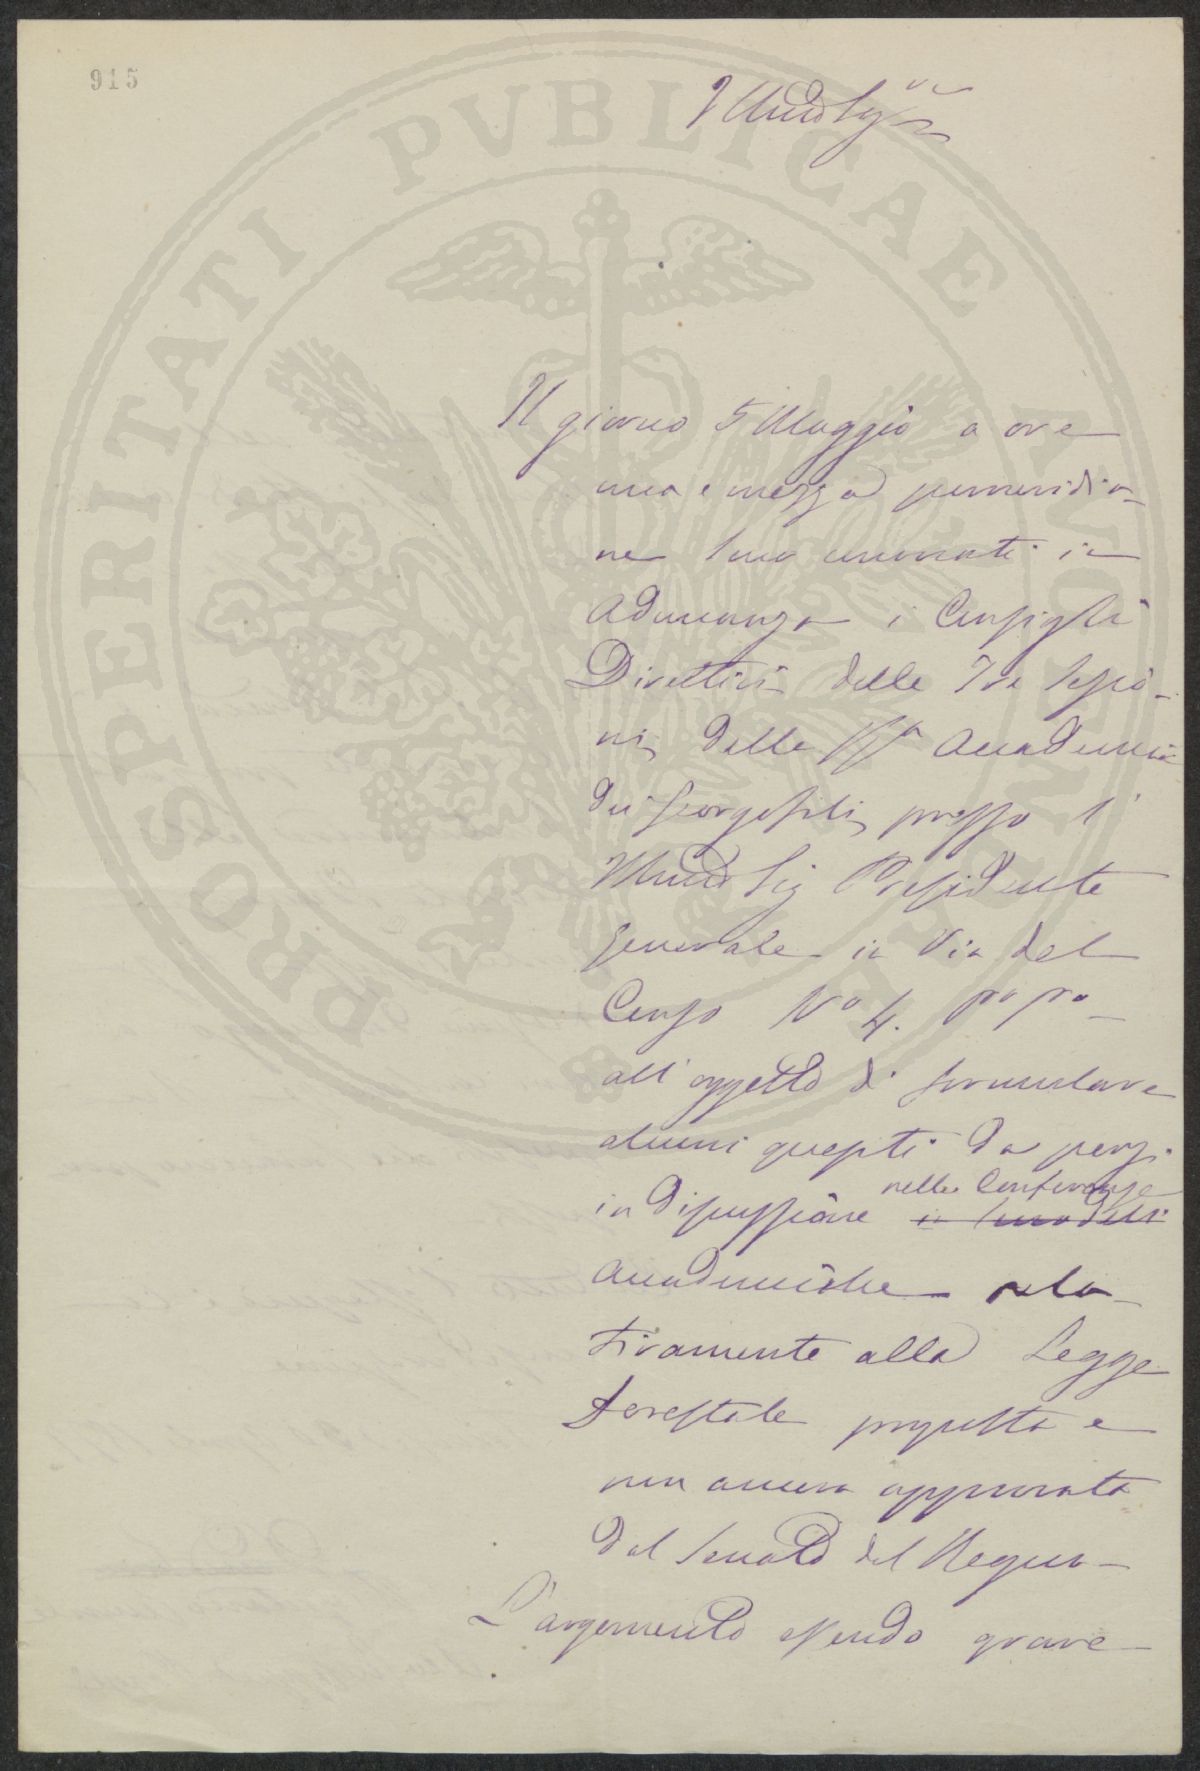 915
PROSPERITATI PVBLICAE AVGENDAE
Il giorno 5 Maggio a ore
una e mezza pomeridia-
ne sono convocati in
Adunanza i Consigli
Direttivi delle Tre Sezio-
ni della R.ª Accademia
dei Georgofili, presso l'
Illmo Sig Presidente
Generale in Via del
Corso Nº 4. pº pº
all'oggetto di formulare
alcuni quesiti da porsi
in discussione nelle Conferenze
Accademiche rela-
tivamente alla Legge
forestale proposta e
non ancora approvata
dal Senato del Regno
L'argomento essendo grave